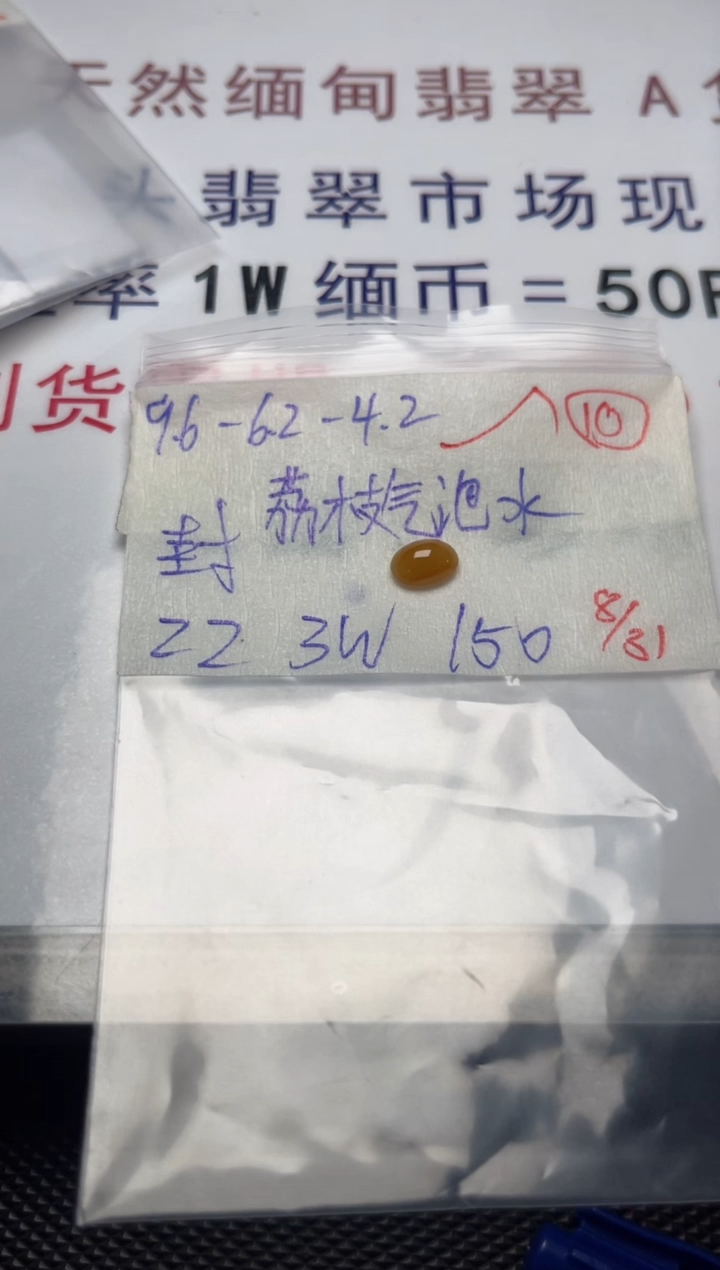 然缅甸翡翠 A
翡翠市场现
率1W缅币=50
货
9.6-6.2-4.2 10
荔枝气泡水
封
ZZ 3W 150 8/31